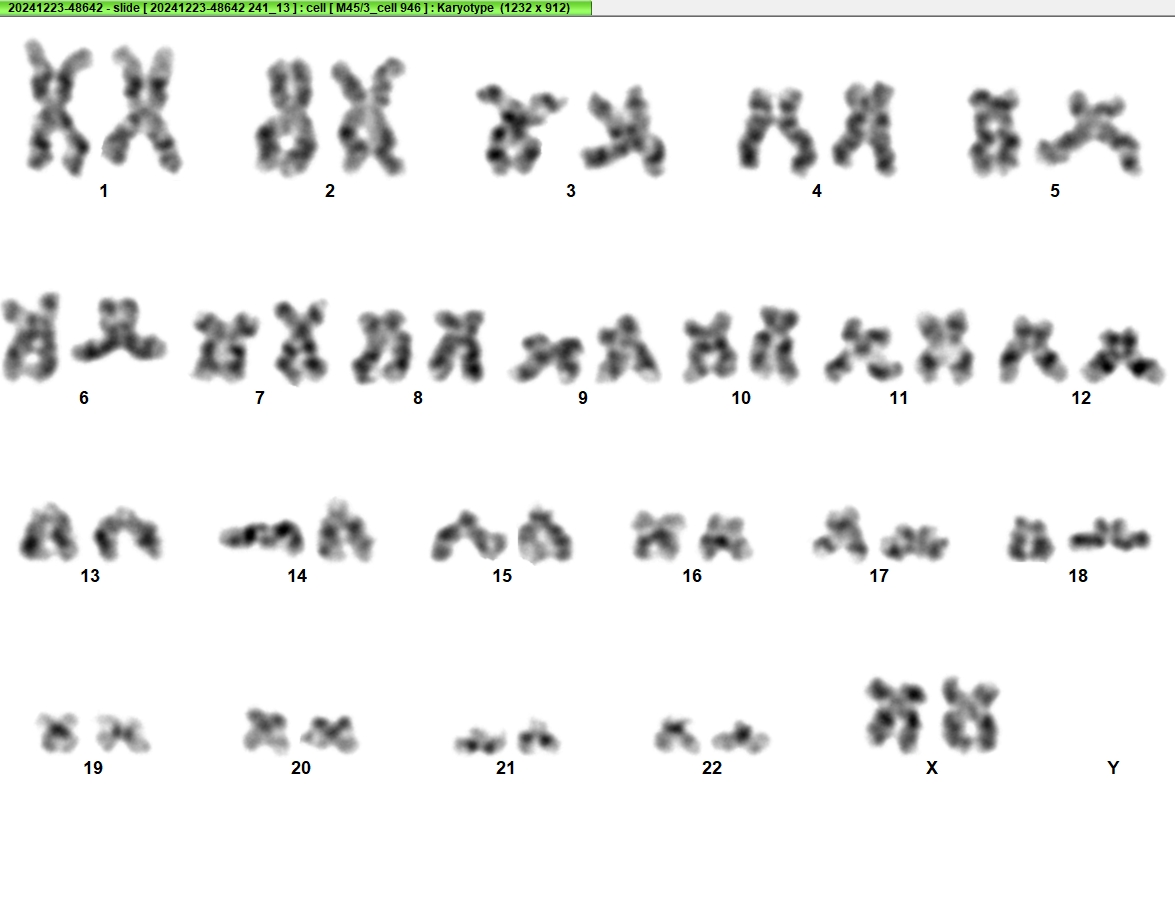 20241223-48642 - slide [ 20241223-48642 241_13 ] : cell [ M45/3_cell 946 ] : Karyotype (1232 x 912)
1 2 3 4 5
6 7 8 9 10 11 12
13 14 15 16 17 18
19 20 21 22 X Y